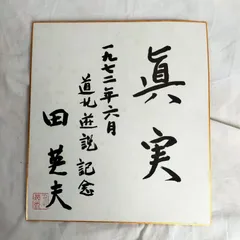 眞実
一九七二年六月
道札遊説 記念
田英夫